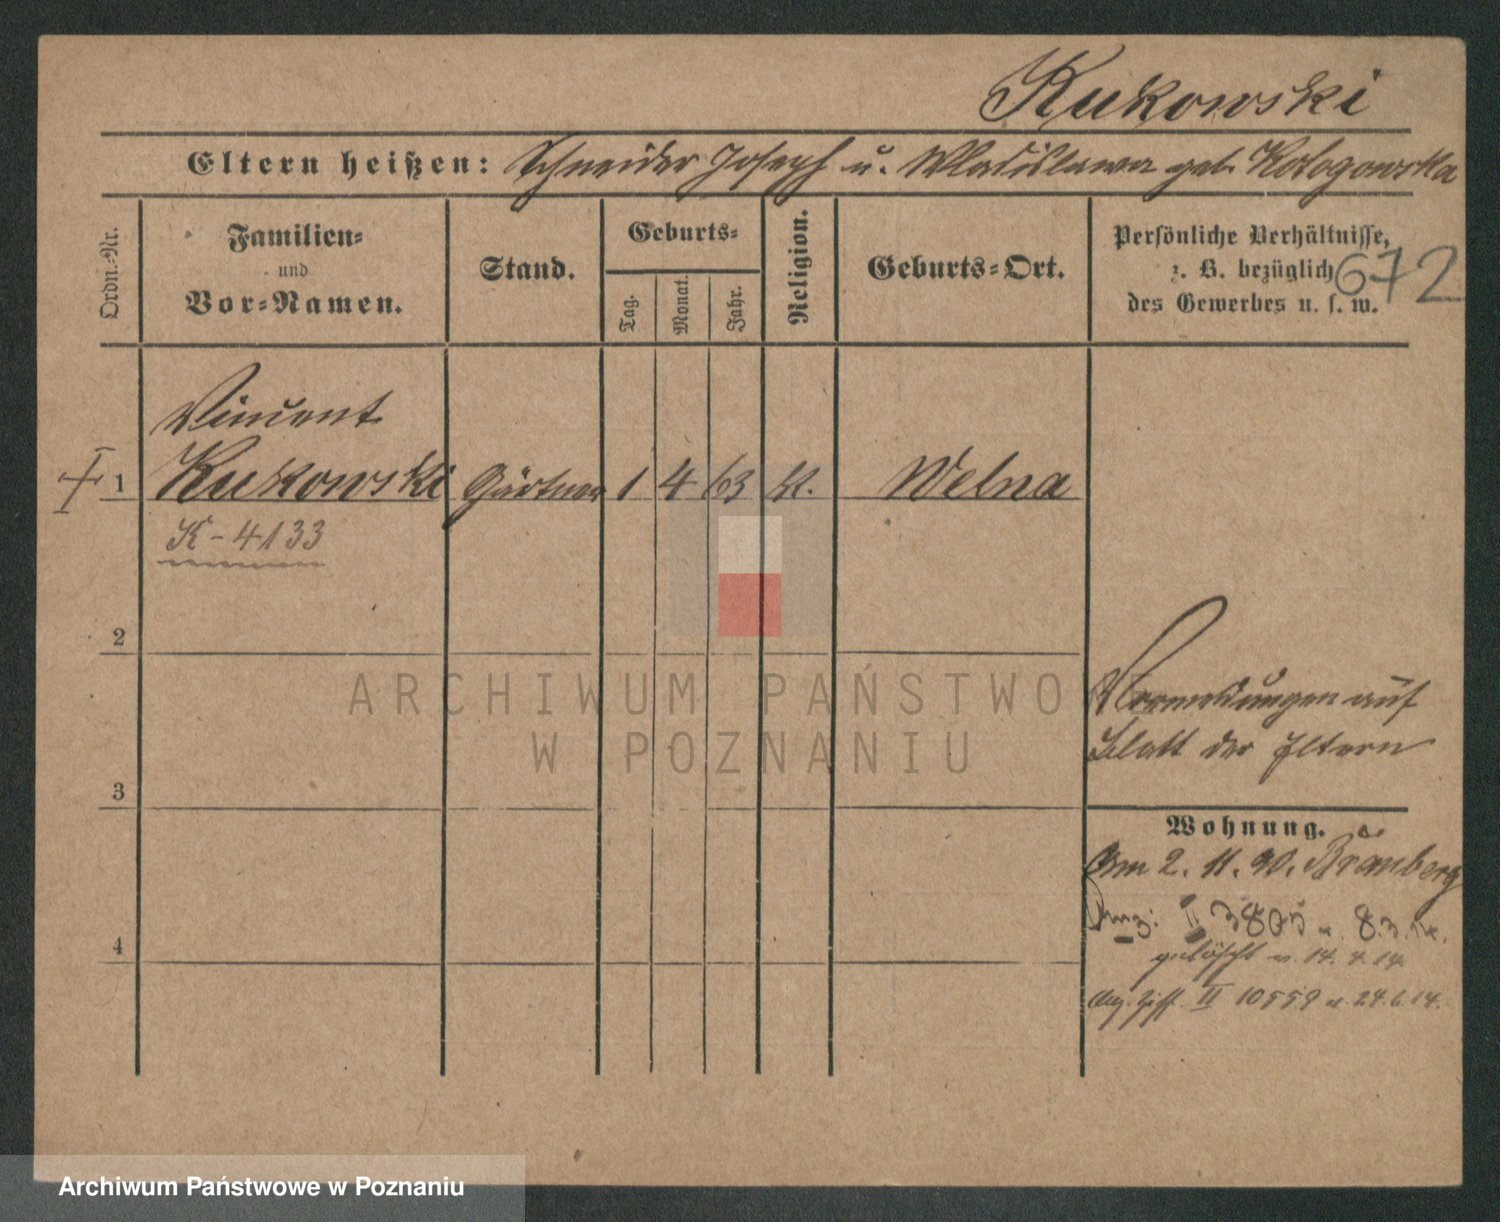 Kukowski
Eltern heißen: Schneider Joseph u. Wladislawa geb.
Ordn.-Nr.
Familien-
und
Vor-Namen.
Stand.
Geburts-
Tag.
Monat.
Jahr.
Religion.
Geburts-Ort.
Persönliche Verhältnisse,
z. B. bezüglich
des Gewerbes u. s. w.
672
Vincent
1 Kukowski Gärtner 1 4 63 k. Welna
K-4133
2
ARCHIWUM PAŃSTWO
W POZNANIU
auf
Blatt der Eltern
3
Wohnung.
Am 2. 11. 90.
II 3805 8.3.14.
gelöscht 14. 4. 14
II 10559 24.6.14.
4
Archiwum Państwowe w Poznaniu